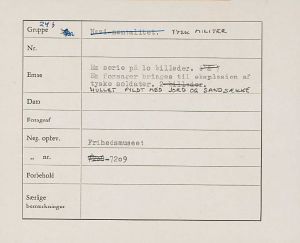 24 s
Gruppe Nazi-mentalitet. TYSK MILITÆR
Nr.
Emne En serie på 10 billeder.
En forsager bringes til eksplosion af
tyske soldater. 2 billeder.
HULLET FYLDT MED JORD OG SANDSÆKKE
Dato
Fotograf
Neg. opbev. Frihedsmuseet
„ nr. -7209
Forbehold
Særlige
bemærkninger